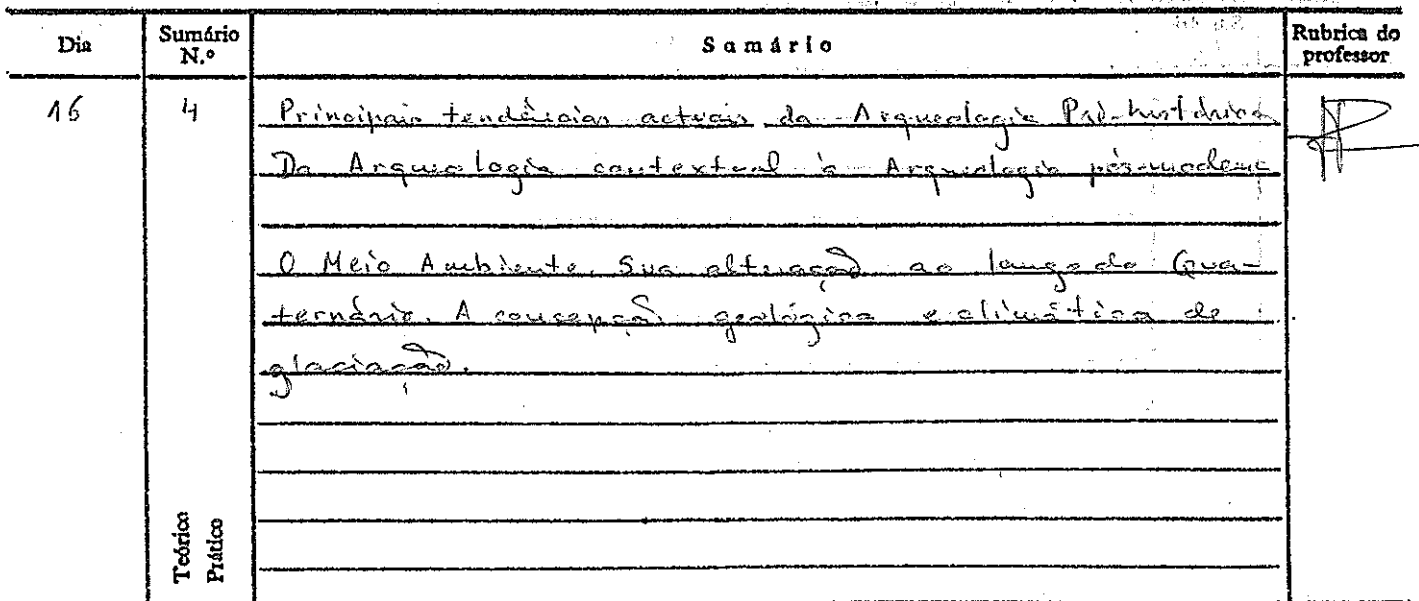 Dia
Sumário N.º
Sumário
Rubrica do professor
16
4
Principais tendências actuais da Arqueologia Pré-histórica
Da Arqueologia contextual à Arqueologia pós-moderna
O Meio Ambiente. Sua alteração ao longo do Qua-
ternário. A concepção geológica e climática de
glaciação.
Teórico
Prático